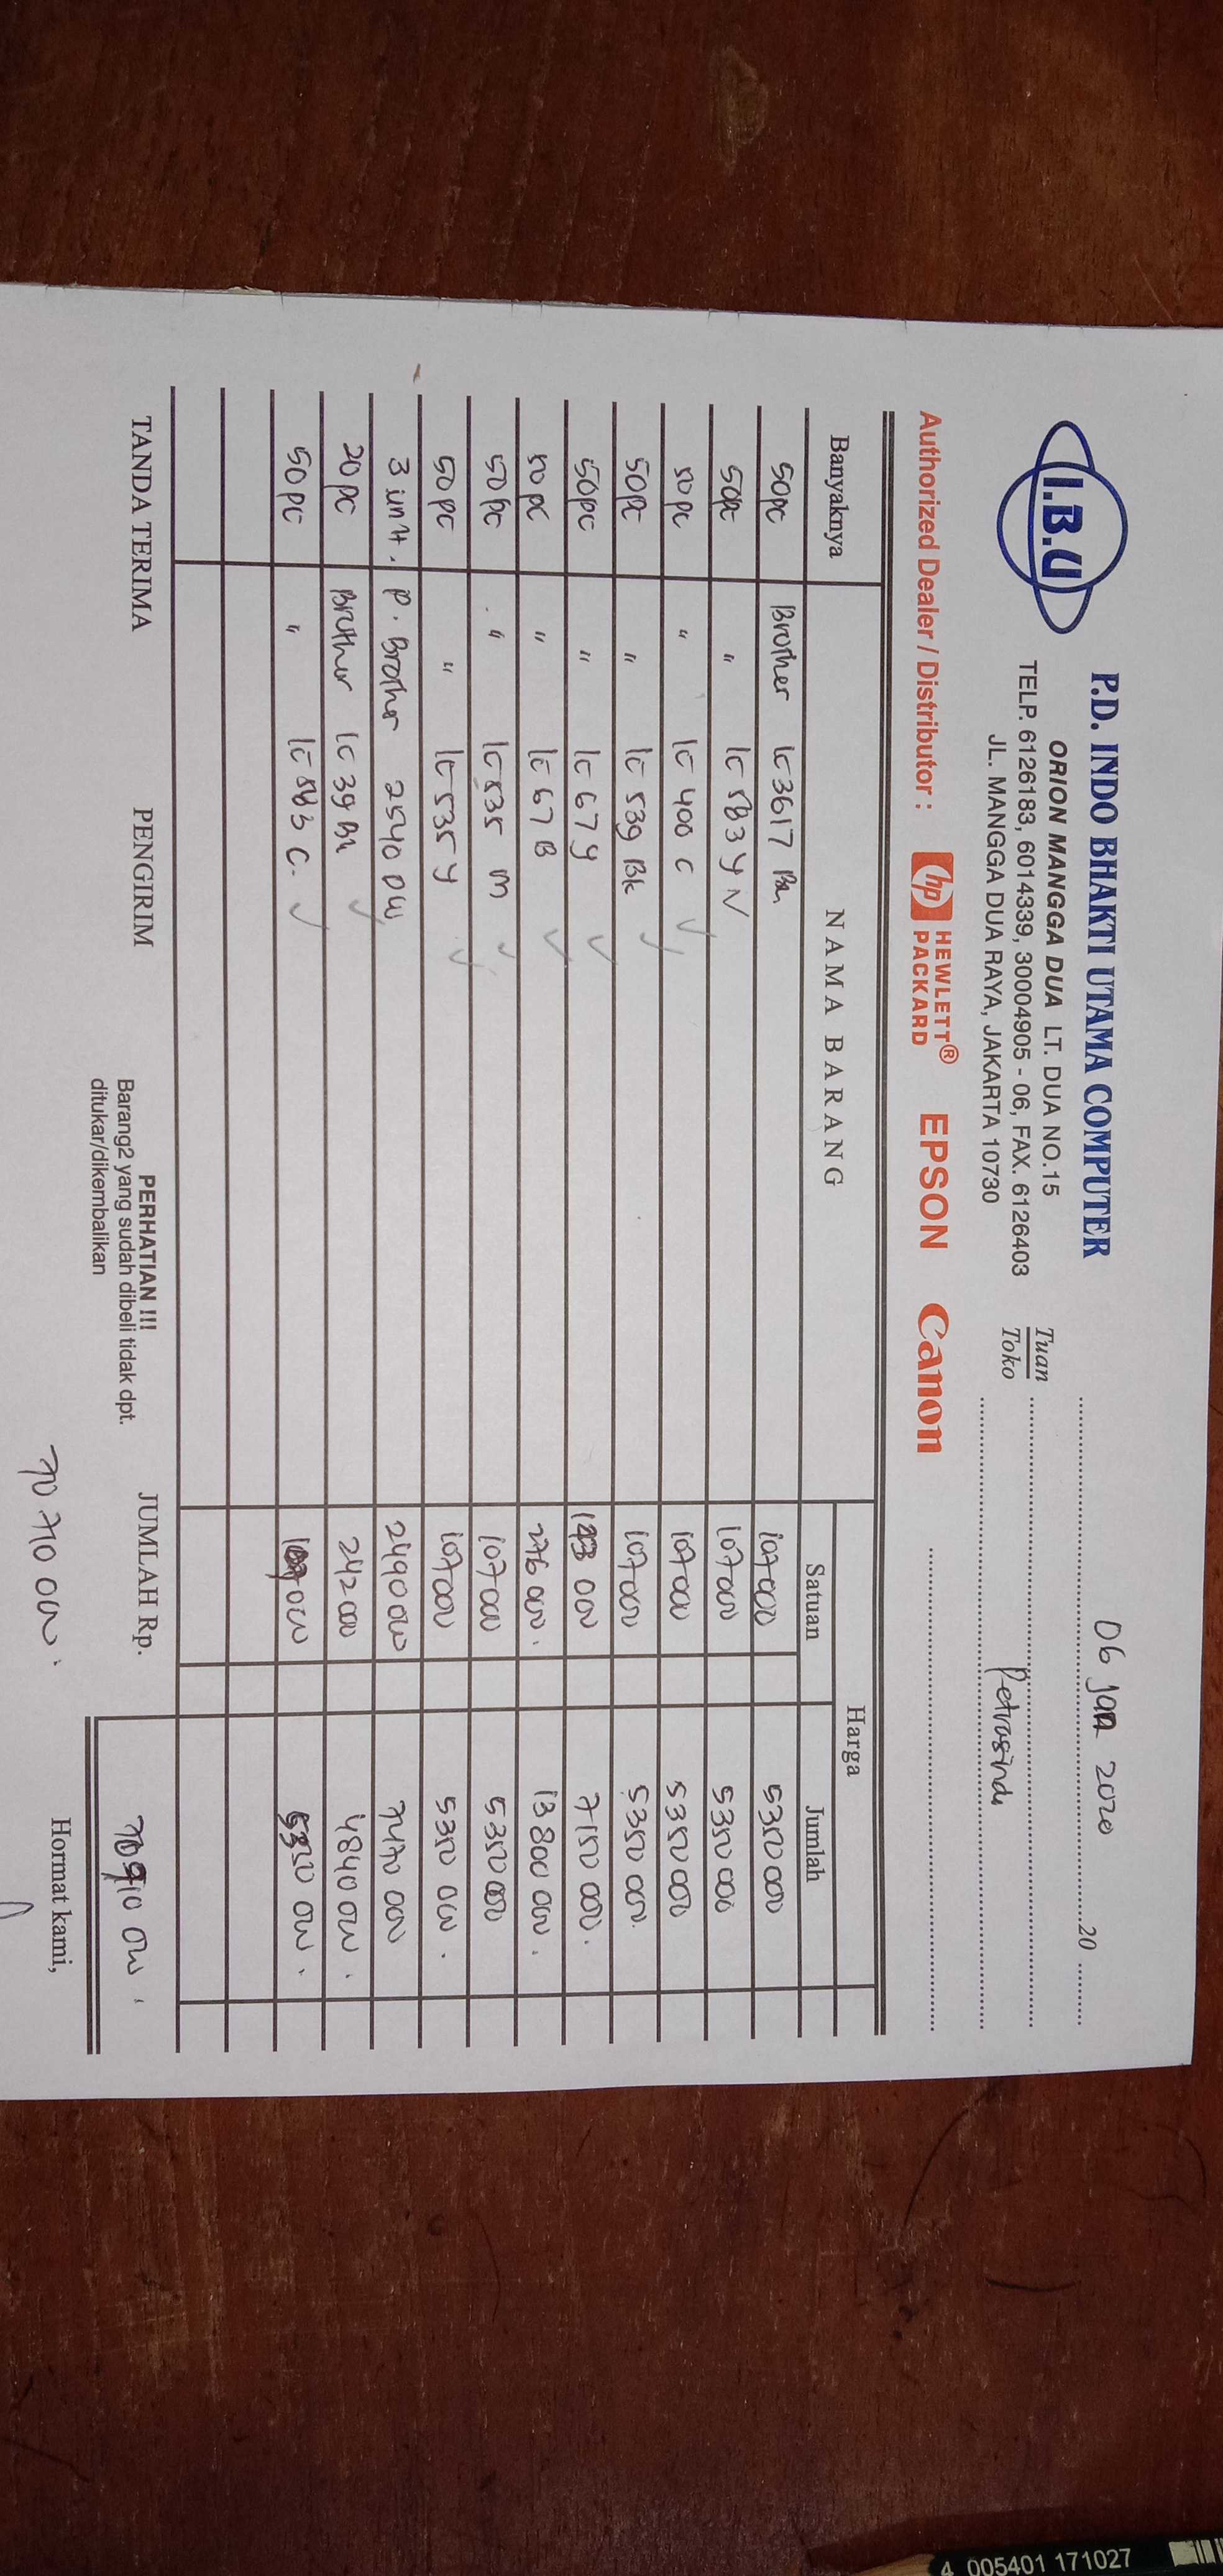 I.B.U
P.D. INDO BHAKTI UTAMA COMPUTER
ORION MANGGA DUA LT. DUA NO.15
TELP. 6126183, 6014339, 30004905 - 06, FAX. 6126403
JL. MANGGA DUA RAYA, JAKARTA 10730
06 Jan 2020 20
Tuan
Toko
Petrasindo
Authorized Dealer / Distributor : hp HEWLETT® PACKARD EPSON Canon
Banyaknya NAMA BARANG Harga
Satuan Jumlah
50pc Brother lc 3617 107000 5350 000
50pc " lc 583 y 107000 5350 000
50pc " lc 400 c 107000 5350 000
50pc " lc 539 Bk 107000 5350 000.
50pc " lc 67 y 143 000 7150 000.
50pc " lc 67 B 276 000. 13 800 000.
50pc " lc 535 m 107000 5350 000
50pc " lc 535 y 107000 5350 000.
3 unit. P. Brother 2540 DW 2490 000 7470 000
20pc Brother lc 39 242 000 4840 000.
50pc " lc 583 C. 107000 5350 000.
TANDA TERIMA PENGIRIM
PERHATIAN !!!
Barang2 yang sudah dibeli tidak dpt.
ditukar/dikembalikan
JUMLAH Rp. 70710 000.
70 710 000.
Hormat kami,
4 005401 171027